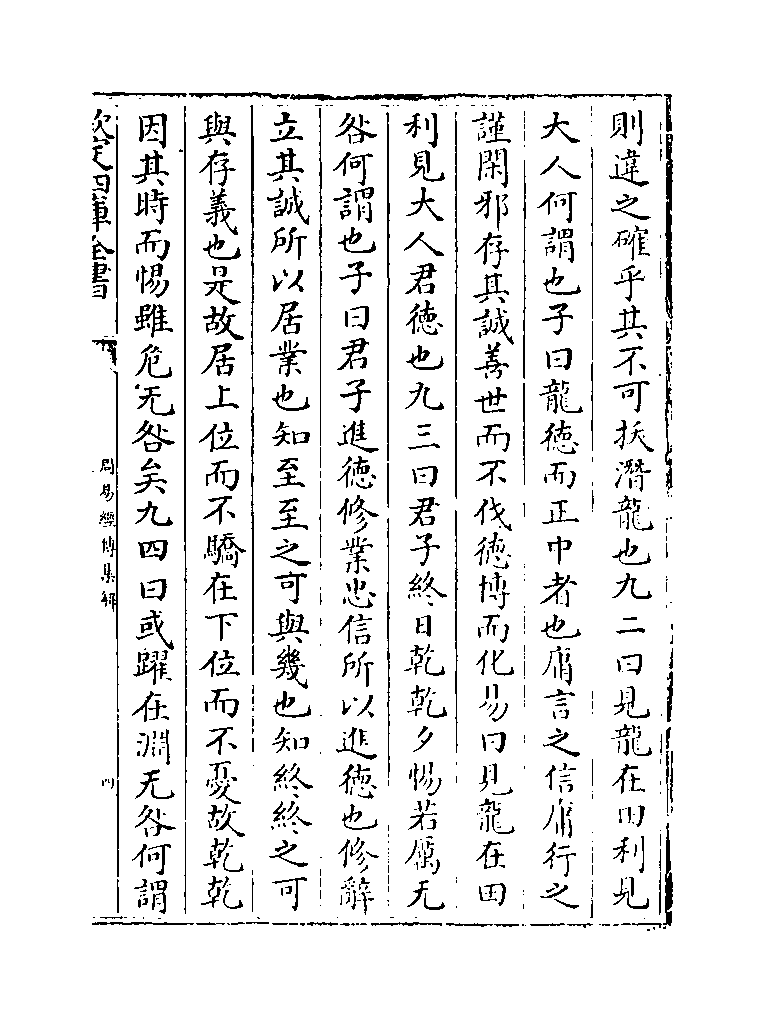 則違之確乎其不可㧞潛龍也九二曰見龍在田利見
大人何謂也子曰龍德而正中者也庸言之信庸行之
謹閑邪存其誠善世而不伐德博而化易曰見龍在田
利見大人君德也九三曰君子終日乾乾夕惕若厲无
咎何謂也子曰君子進德修業忠信所以進德也修辭
立其誠所以居業也知至至之可與幾也知終終之可
與存義也是故居上位而不驕在下位而不憂故乾乾
因其時而惕雖危无咎矣九四曰或躍在淵无咎何謂
欽定四庫全書
周易經傳集解
四